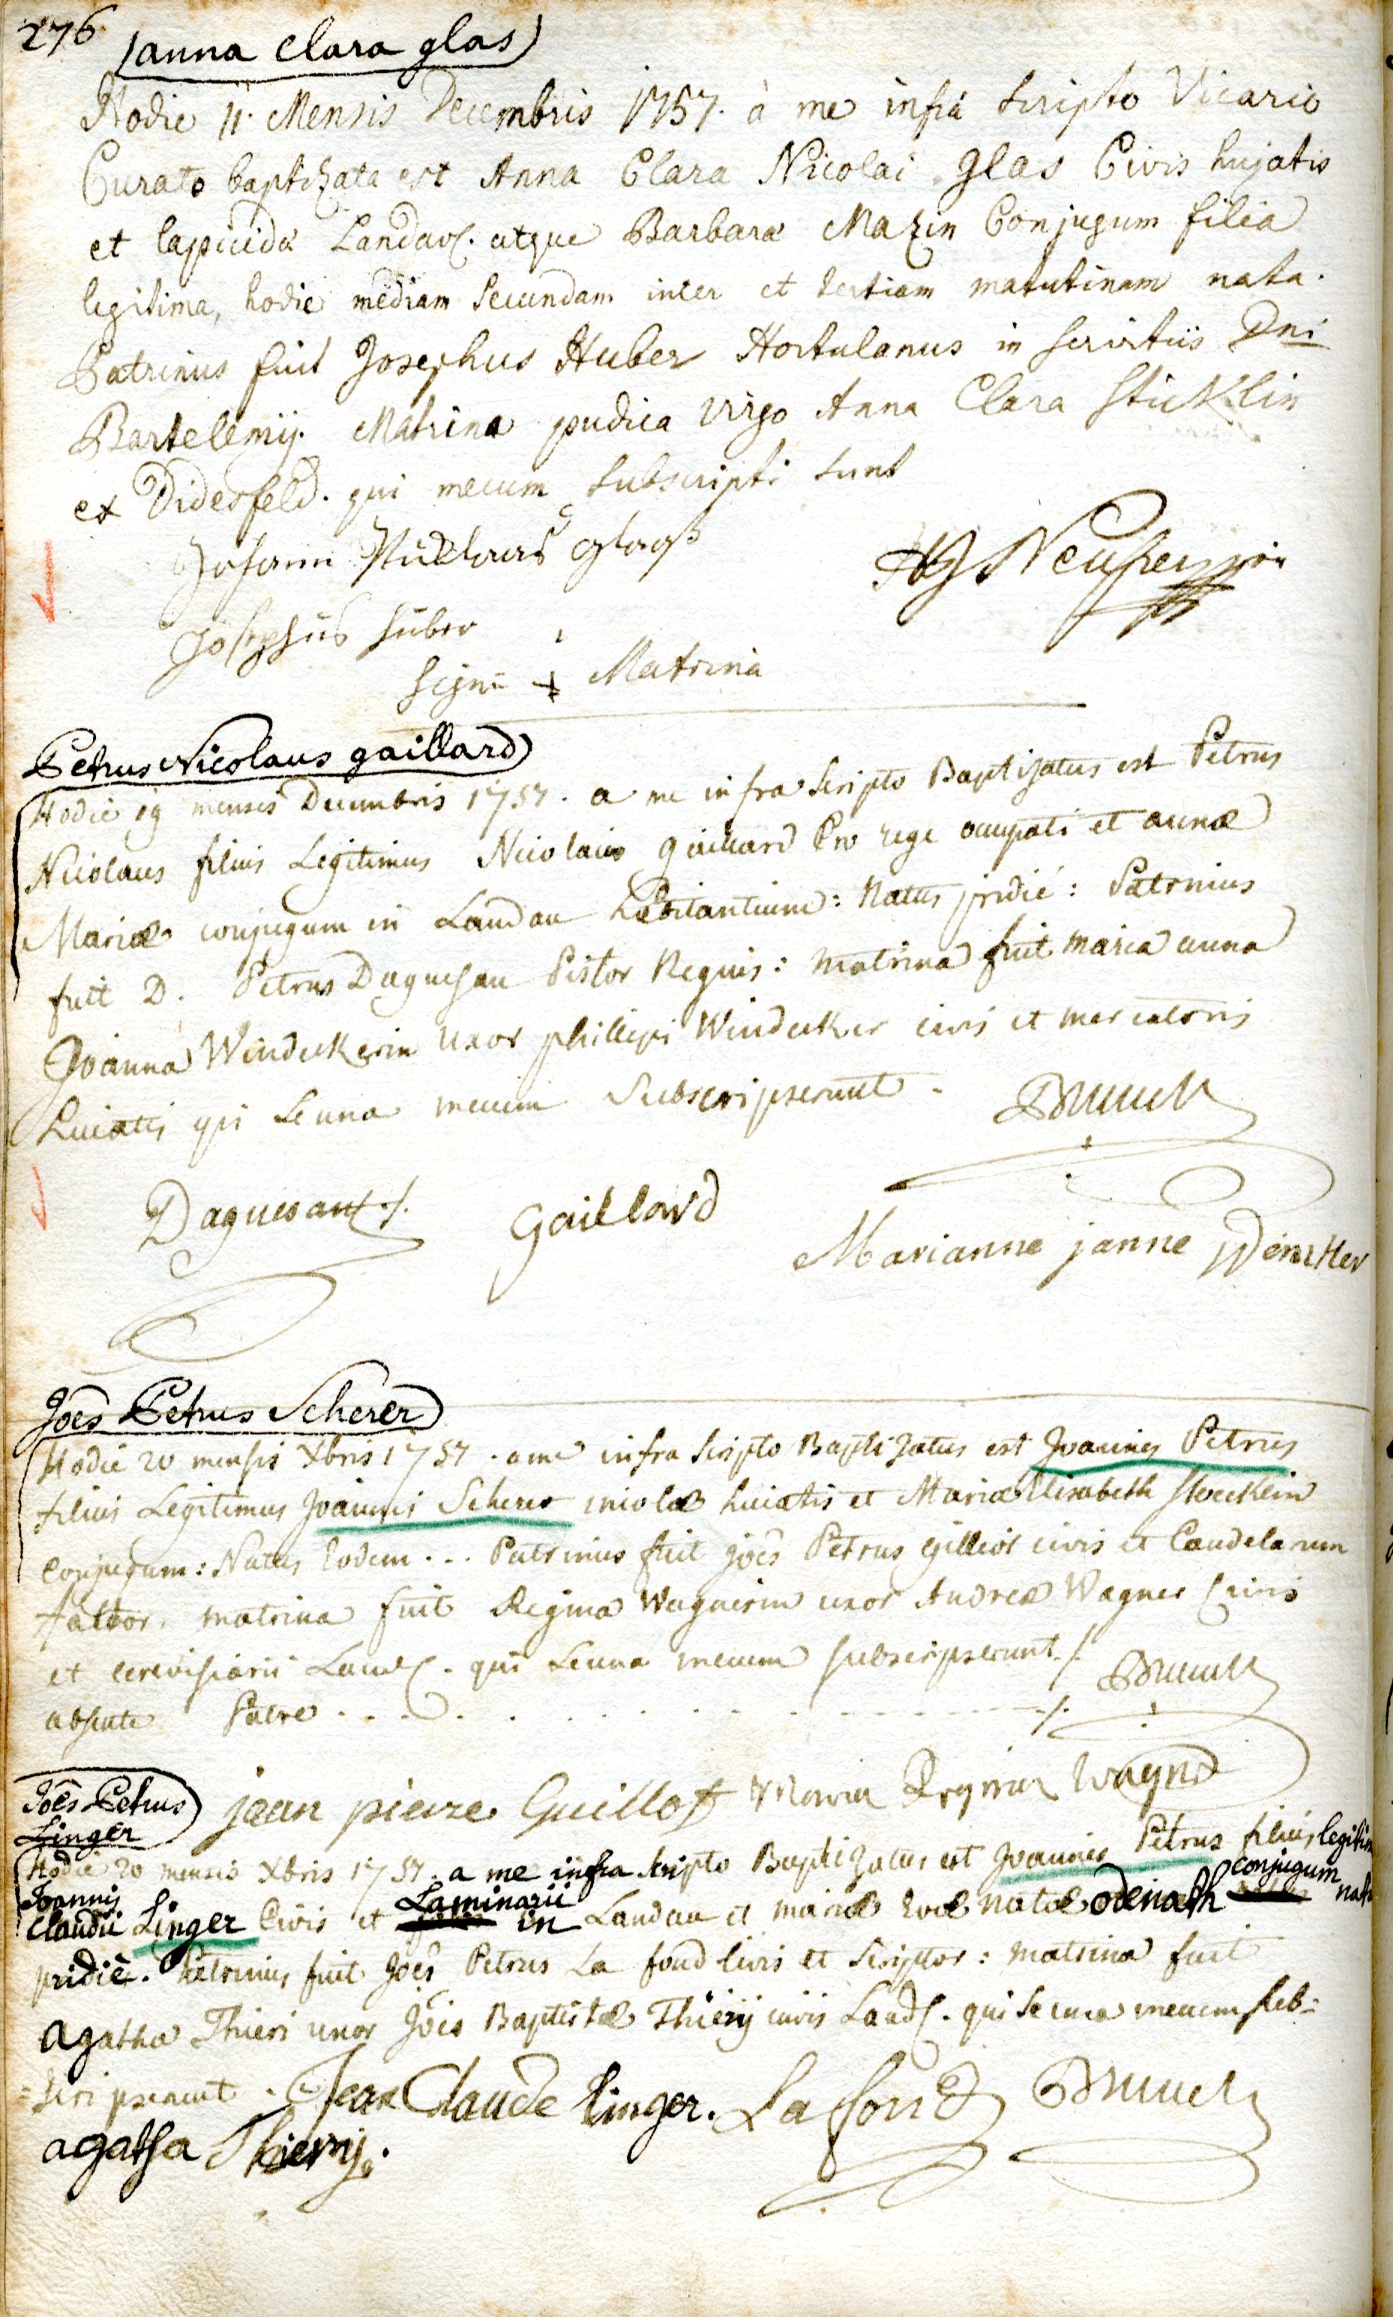 276
(anna clara glas)
Hodie 11. Mensis Decembris 1757. à me infrà scripto Vicario
Curato baptizata est Anna Clara Nicolai Glas Civis hujatis
et lapicidæ Landav. atque Barbaræ Mazin Conjugum filia
legitima, hodie mediam secundam inter et tertiam matutinam nata.
Patrinus fuit Josephus Huber Hortulanus in servitiis Dni
Bartelemÿ. Matrina pudica virgo Anna Clara Sticklin
ex Didesfeld. qui mecum subscripti sunt
Johann Nicklaus Glaß
Josephus Huber
Sign. + Matrina
Petrus Nicolaus gaillard
Hodie 19 mensis Decembris 1757. a me infra scripto Baptizatus est Petrus
Nicolaus filius Legitimus Nicolaus gaillard Pro rege occupati et annæ
Mariæ conjugum in Landau habitantium: Natus pridie: Patrinus
fuit D. Petrus Daguesau Pistor Regius: matrina fuit maria anna
Joanna Windeckerin uxor phillipi Windecker civis et mercatoris
huiatis qui se una mecum subscripserunt.
Brunck
Daguesant
Gaillard
Marianne janne
Joēs Petrus Scherer
Hodie 20 mensis Xbris 1757. a me infra scripto Baptizatus est Joannes Petrus
filius Legitimus Joannis Scherer incolæ huiatis et Mariæ Elisabeth Stoecklin
conjugum: Natus eodem... Patrinus fuit joēs Petrus Gillot civis et Candelarum
factor. matrina fuit Regina Wagnerin uxor Andreæ Wagner Civis
et cerevisiarii Land. qui se una mecum subscripserunt ./.
absente Patre . . . ./.
Brunck
jean pierre Guillot Maria Regina Wagner
Joēs Petrus
Linger
Hodie 20 mensis Xbris 1757. a me infra scripto Baptizatus est Joannes Petrus filius legitim
Joannis
Claudii Linger Civis et Laminarii in Landau et mariæ Evæ natæ odenath conjugum natus
pridie. Patrinus fuit Joēs Petrus La fond Civis et Scriptor: matrina fuit
Agatha Thieri uxor Jōis Baptistæ Thiery civis Land. qui se una mecum sub=
=scripserunt.
Jean Claude Linger. Lafond Brunck
agatha Thierry.